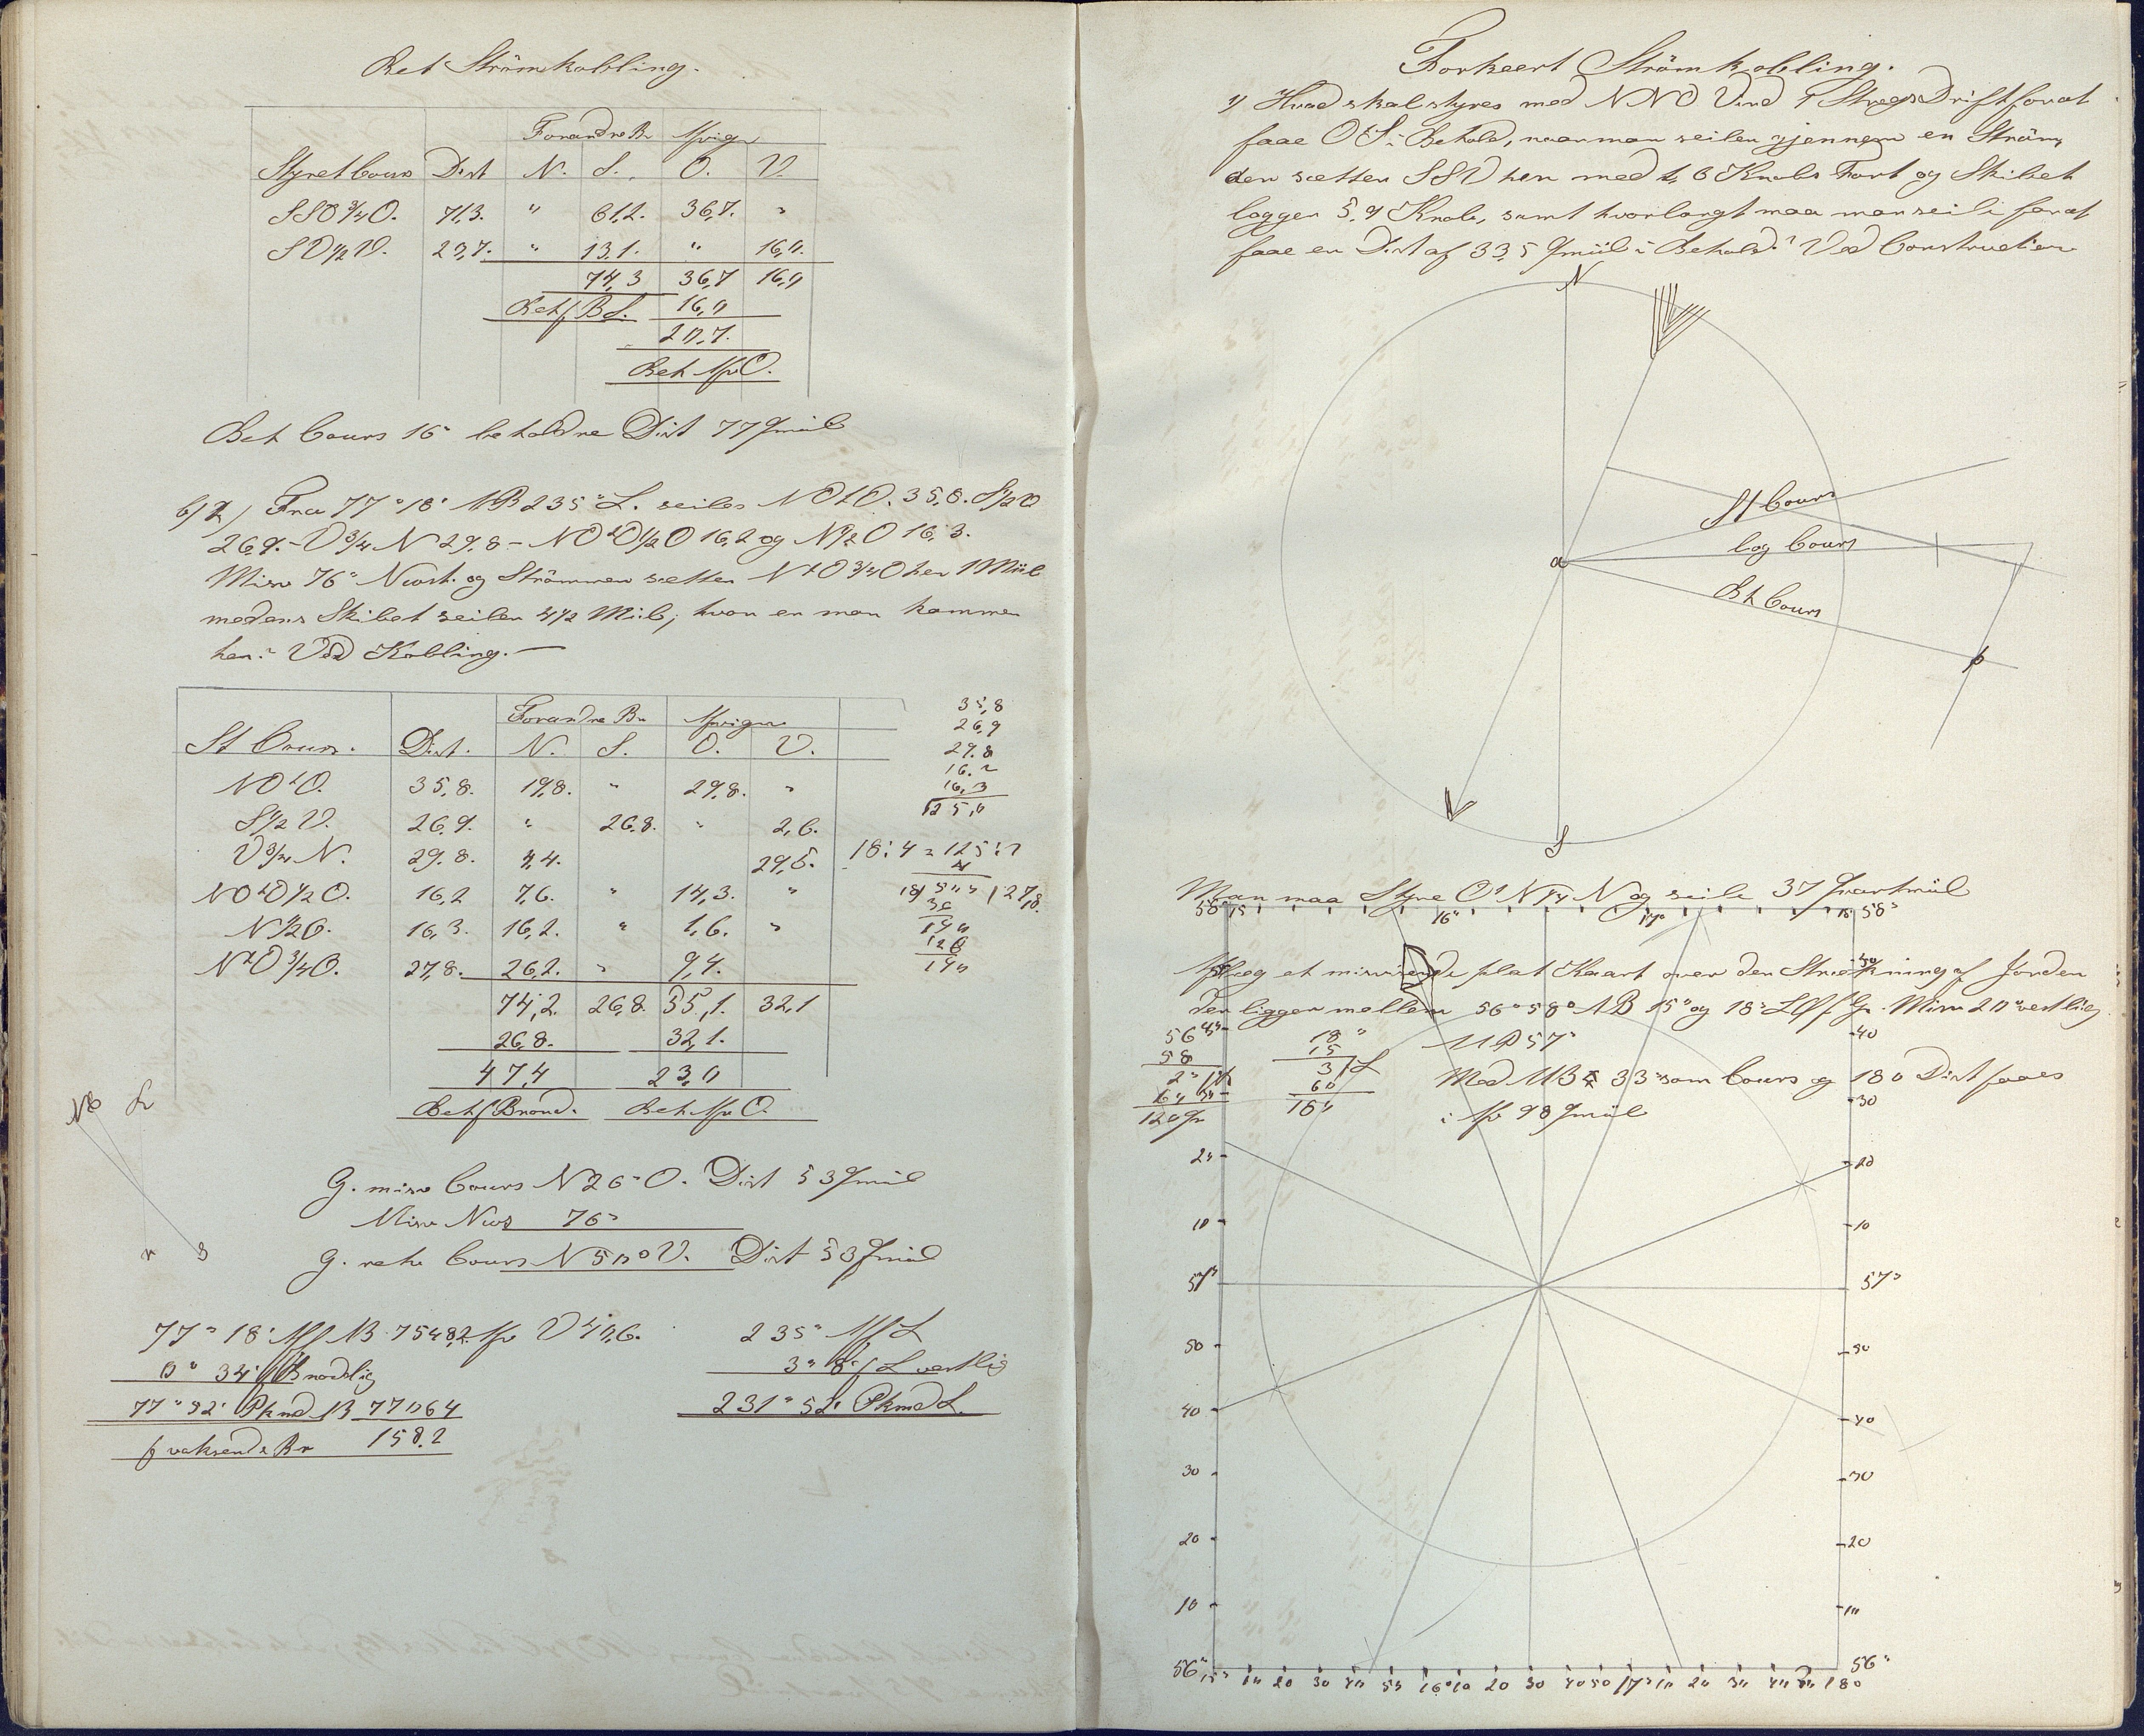 Ret Strömkobling.
Forandre Br Afvigr
Styret Cours Dist N. S. O. V.
SSO 3/4 O. 71,3. " 61,2. 36,7. "
SV 1/2 V. 20,7. " 13,1. " 16,0.
74,3 36,7 16,0
Beh f B S. 16,0
20,7.
Beh Afv O.
Beh Cours 16° beholdne Dist 77 Qmiil
6) 2) Fra 77° 18' NB 235° L. seiles NOtO. 35,8. S 1/2 V
26,9. - V 3/4 N 29,8 - NOtO 1/2 O 16,2 og N 1/2 O 16,3.
Misv 76° Nvest. og Strömmen sætter NtO 3/4 O hen 1 Miil
medens Skibet seiler 4 1/2 Miil; hvor er man kommen
hen? Ved Kobling. —
Forandre Br Afvigr
St Cours. Dist. N. S. O. V.
NOtO. 35,8. 19,8. " 29,8. "
S 1/2 V. 26,9. " 26,8. " 2,6.
V 3/4 N. 29,8. 4,4. 29,5.
NOtO 1/2 O. 16,2 7,6. " 14,3. "
N 1/2 O. 16,3. 16,2. " 1,6. "
NtO 3/4 O. 27,8. 26,2. " 9,4.
74,2. 26,8. 55,1. 32,1
26,8. 32,1.
47,4 23,0
Beh f Brand. Beh Afv O.
35,8
26,9
29,8
16,2
16,3
125,0
18 : 4 = 125 : ?
4
18/ 500 / 27,8.
36
140
126
140
G. misv Cours N 26° O. Dist 53 Qmiil
Misv Nves 76°
G. retv Cours N 50° V. Dist 53 Qmiil
77° 18' Aff NB 7548,2 Afv V 40,6.
0° 34' f B nordlig
77° 52' Pkmd NB 7706,4
f voksende Br 158,2
235° Aff L
3° 8' f L vestlig
231° 52' Pkmd L.
Forkeert Strömkobling.
1) Hvad skal styres med NNO Vind 1 Stregs Drift for at
faae OtS i Behold, naar man seiler gjennem en Ström,
der sætter SSV hen med 1,6 Knobs Fart og Skibet
logger 5,9 Knob, samt hvor langt maa man seile for at
faae en Dist af 33,5 Qmiil i Behold? Ved Construction
N
St Cours
Log Cours
a
Bh Cours
b
S
Man maa Styre OtN 1/4 N og seile 37 Quartmiil
58° 15 16° 17° 18 58°
Aflæg et misvisende plat Kaart over den Strækning af Jorden
der ligger mellem 56° 58° NB 15° og 18° L Øf G. Misv 20° vestlig
56°
58
2°
60
120
18°
15
3 f L
60
180
MB 57°
Med MB 33° som Cours og 180 Dist faaes
i Afv 98 Qmiil
40
30
20 20
10 10
57° 57°
50 50
40 40
30 30
20 20
10 10
56° 56°
15° 10 20 30 40 50 16° 10 20 30 40 50 17° 10 20 30 40 50 18°